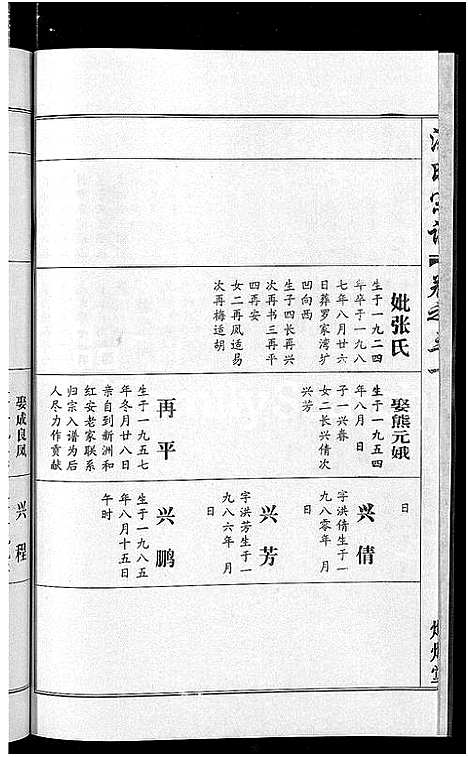 妣张氏
生于一九二四
年卒于一九八
七年八月廿六
日葬罗家湾圹
凹向西
生子四长再兴
次再书三再平
四再安
女二再凤适易
次再梅适胡
娶熊元娥
生于一九五四
年八月 日
子一兴春
女二长兴倩次
兴芳
再平
生于一九五七
年冬月廿八日
亲自到新洲和
红安老家联系
归宗入谱为后
人尽力作贡献
日
兴倩
字洪倩生于一
九八零年 月
日
兴芳
字洪芳生于一
九八六年 月
日
兴鹏
生于一九八五
年八月十五日
午时
娶成良凤
兴程